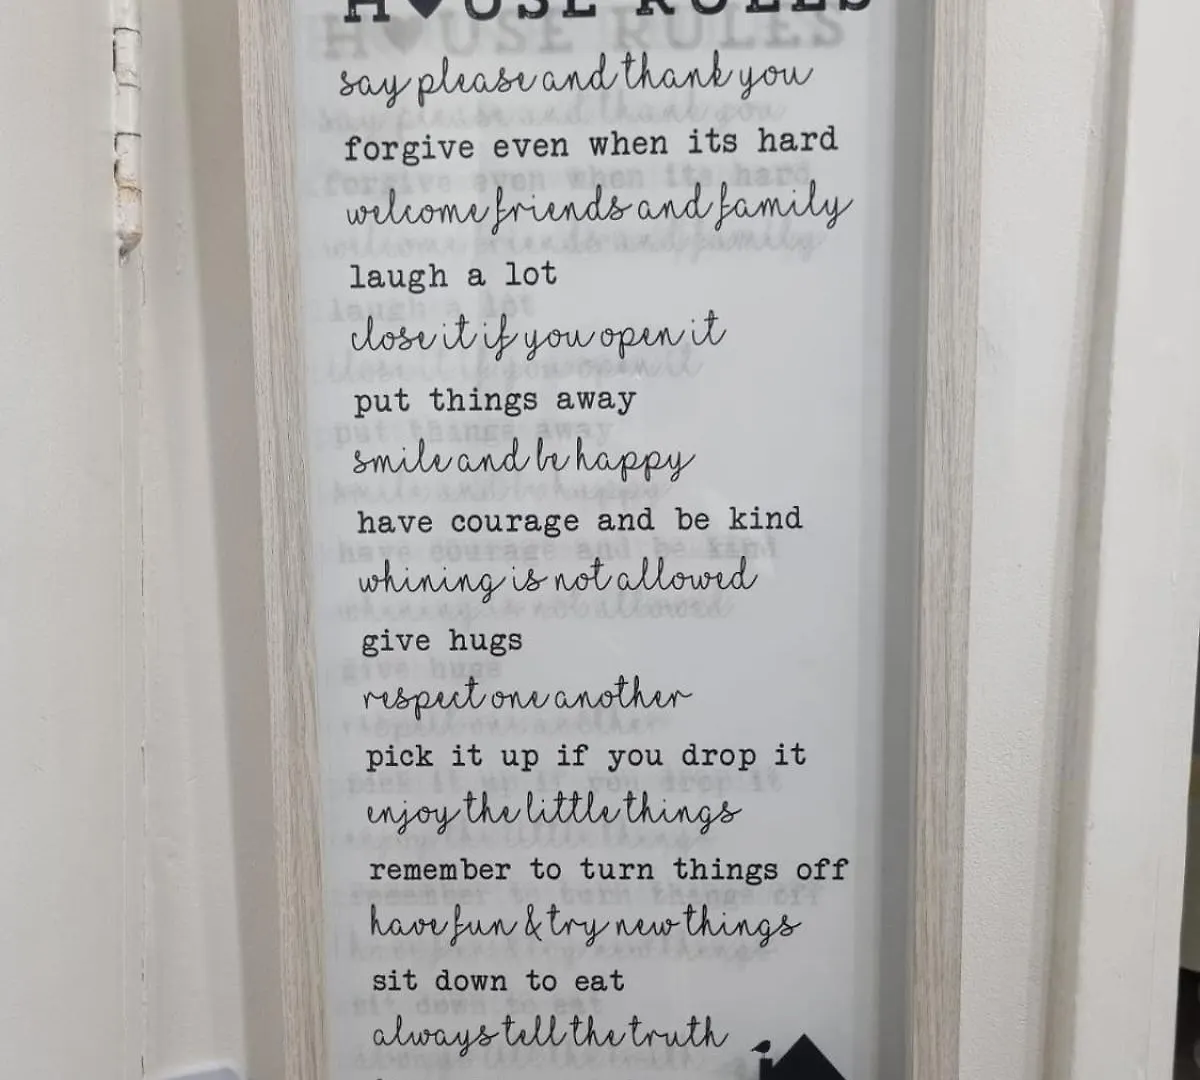 H♥USE RULES
say please and thank you
forgive even when its hard
welcome friends and family
laugh a lot
close it if you open it
put things away
smile and be happy
have courage and be kind
whining is not allowed
give hugs
respect one another
pick it up if you drop it
enjoy the little things
remember to turn things off
have fun & try new things
sit down to eat
always tell the truth